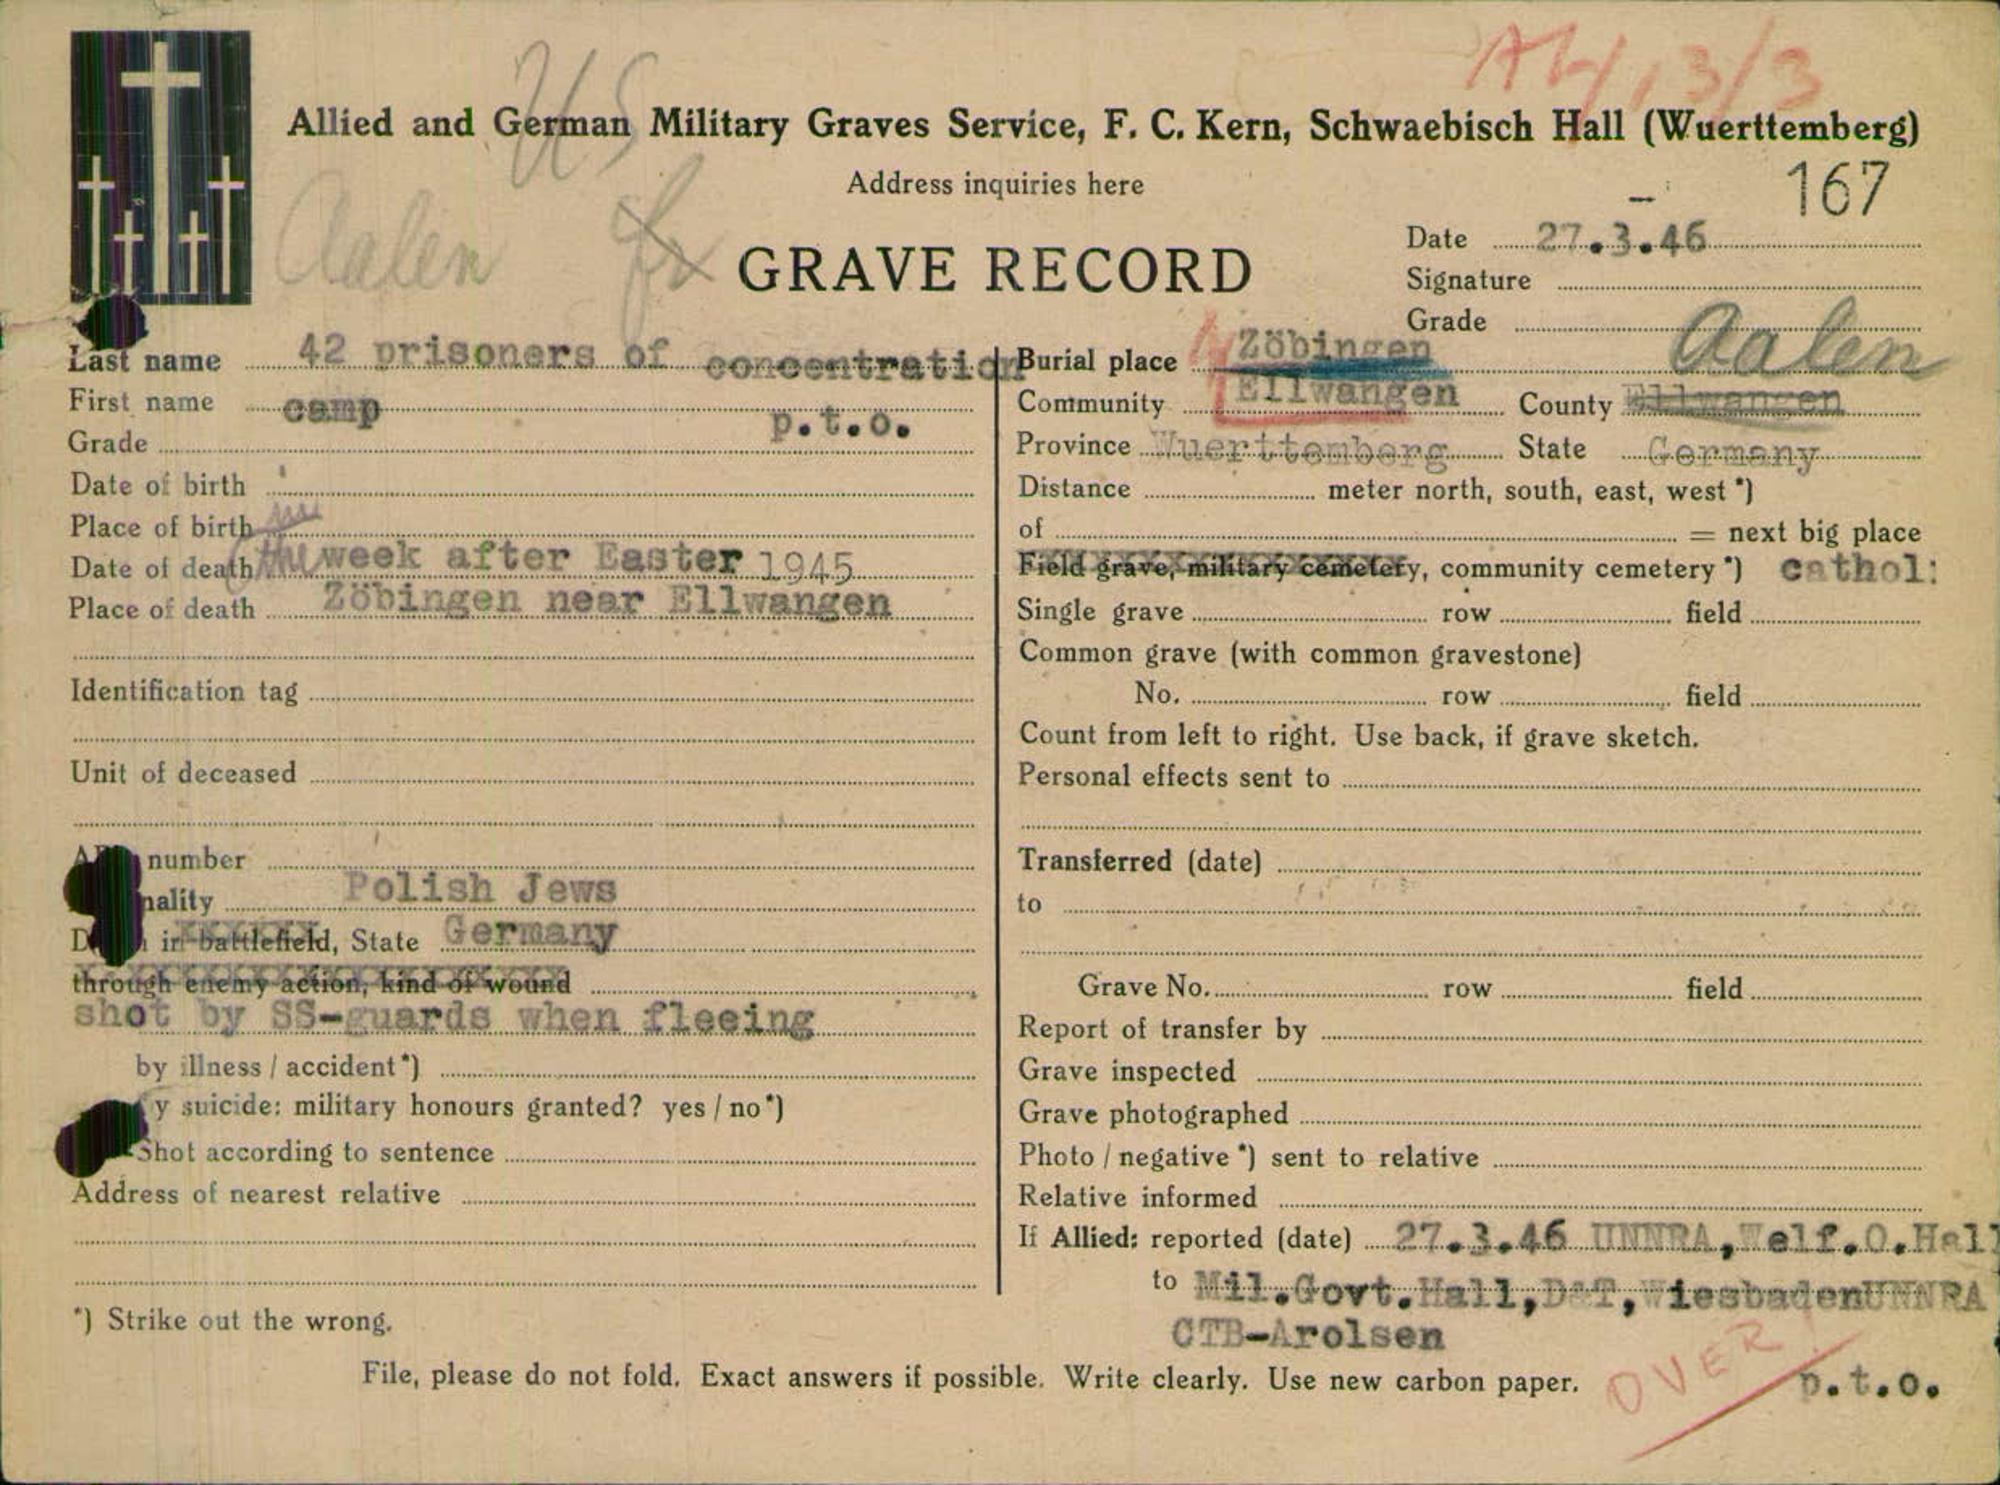 AL/, 3/3
US
Allied and German Military Graves Service, F. C. Kern, Schwaebisch Hall (Wuerttemberg)
Address inquiries here
167
Aalen fr
GRAVE RECORD
Date 27.3.46
Signature
Grade
Aalen
Last name 42 prisoners of concentration
First name camp p.t.o.
Grade
Date of birth
Place of birth
Date of death week after Easter 1945
Place of death Zöbingen near Ellwangen
Identification tag
Unit of deceased
number
nality Polish Jews
in battlefield, State Germany
through enemy action, kind of wound
shot by SS-guards when fleeing
by illness / accident *)
y suicide: military honours granted? yes / no *)
Shot according to sentence
Address of nearest relative
*) Strike out the wrong.
Burial place Zöbingen
Community Ellwangen County Ellwangen
Province Wuerttemberg State Germany
Distance meter north, south, east, west *)
of = next big place
Field grave, military cemetery, community cemetery *) cathol:
Single grave row field
Common grave (with common gravestone)
No. row field
Count from left to right. Use back, if grave sketch.
Personal effects sent to
Transferred (date)
to
Grave No. row field
Report of transfer by
Grave inspected
Grave photographed
Photo / negative *) sent to relative
Relative informed
If Allied: reported (date) 27.3.46 UNNRA, Welf.O.Hall
to Mil.Govt.Hall, D&T, Wiesbaden UNNRA
CTB-Arolsen
File, please do not fold. Exact answers if possible. Write clearly. Use new carbon paper.
OVER!
p.t.o.